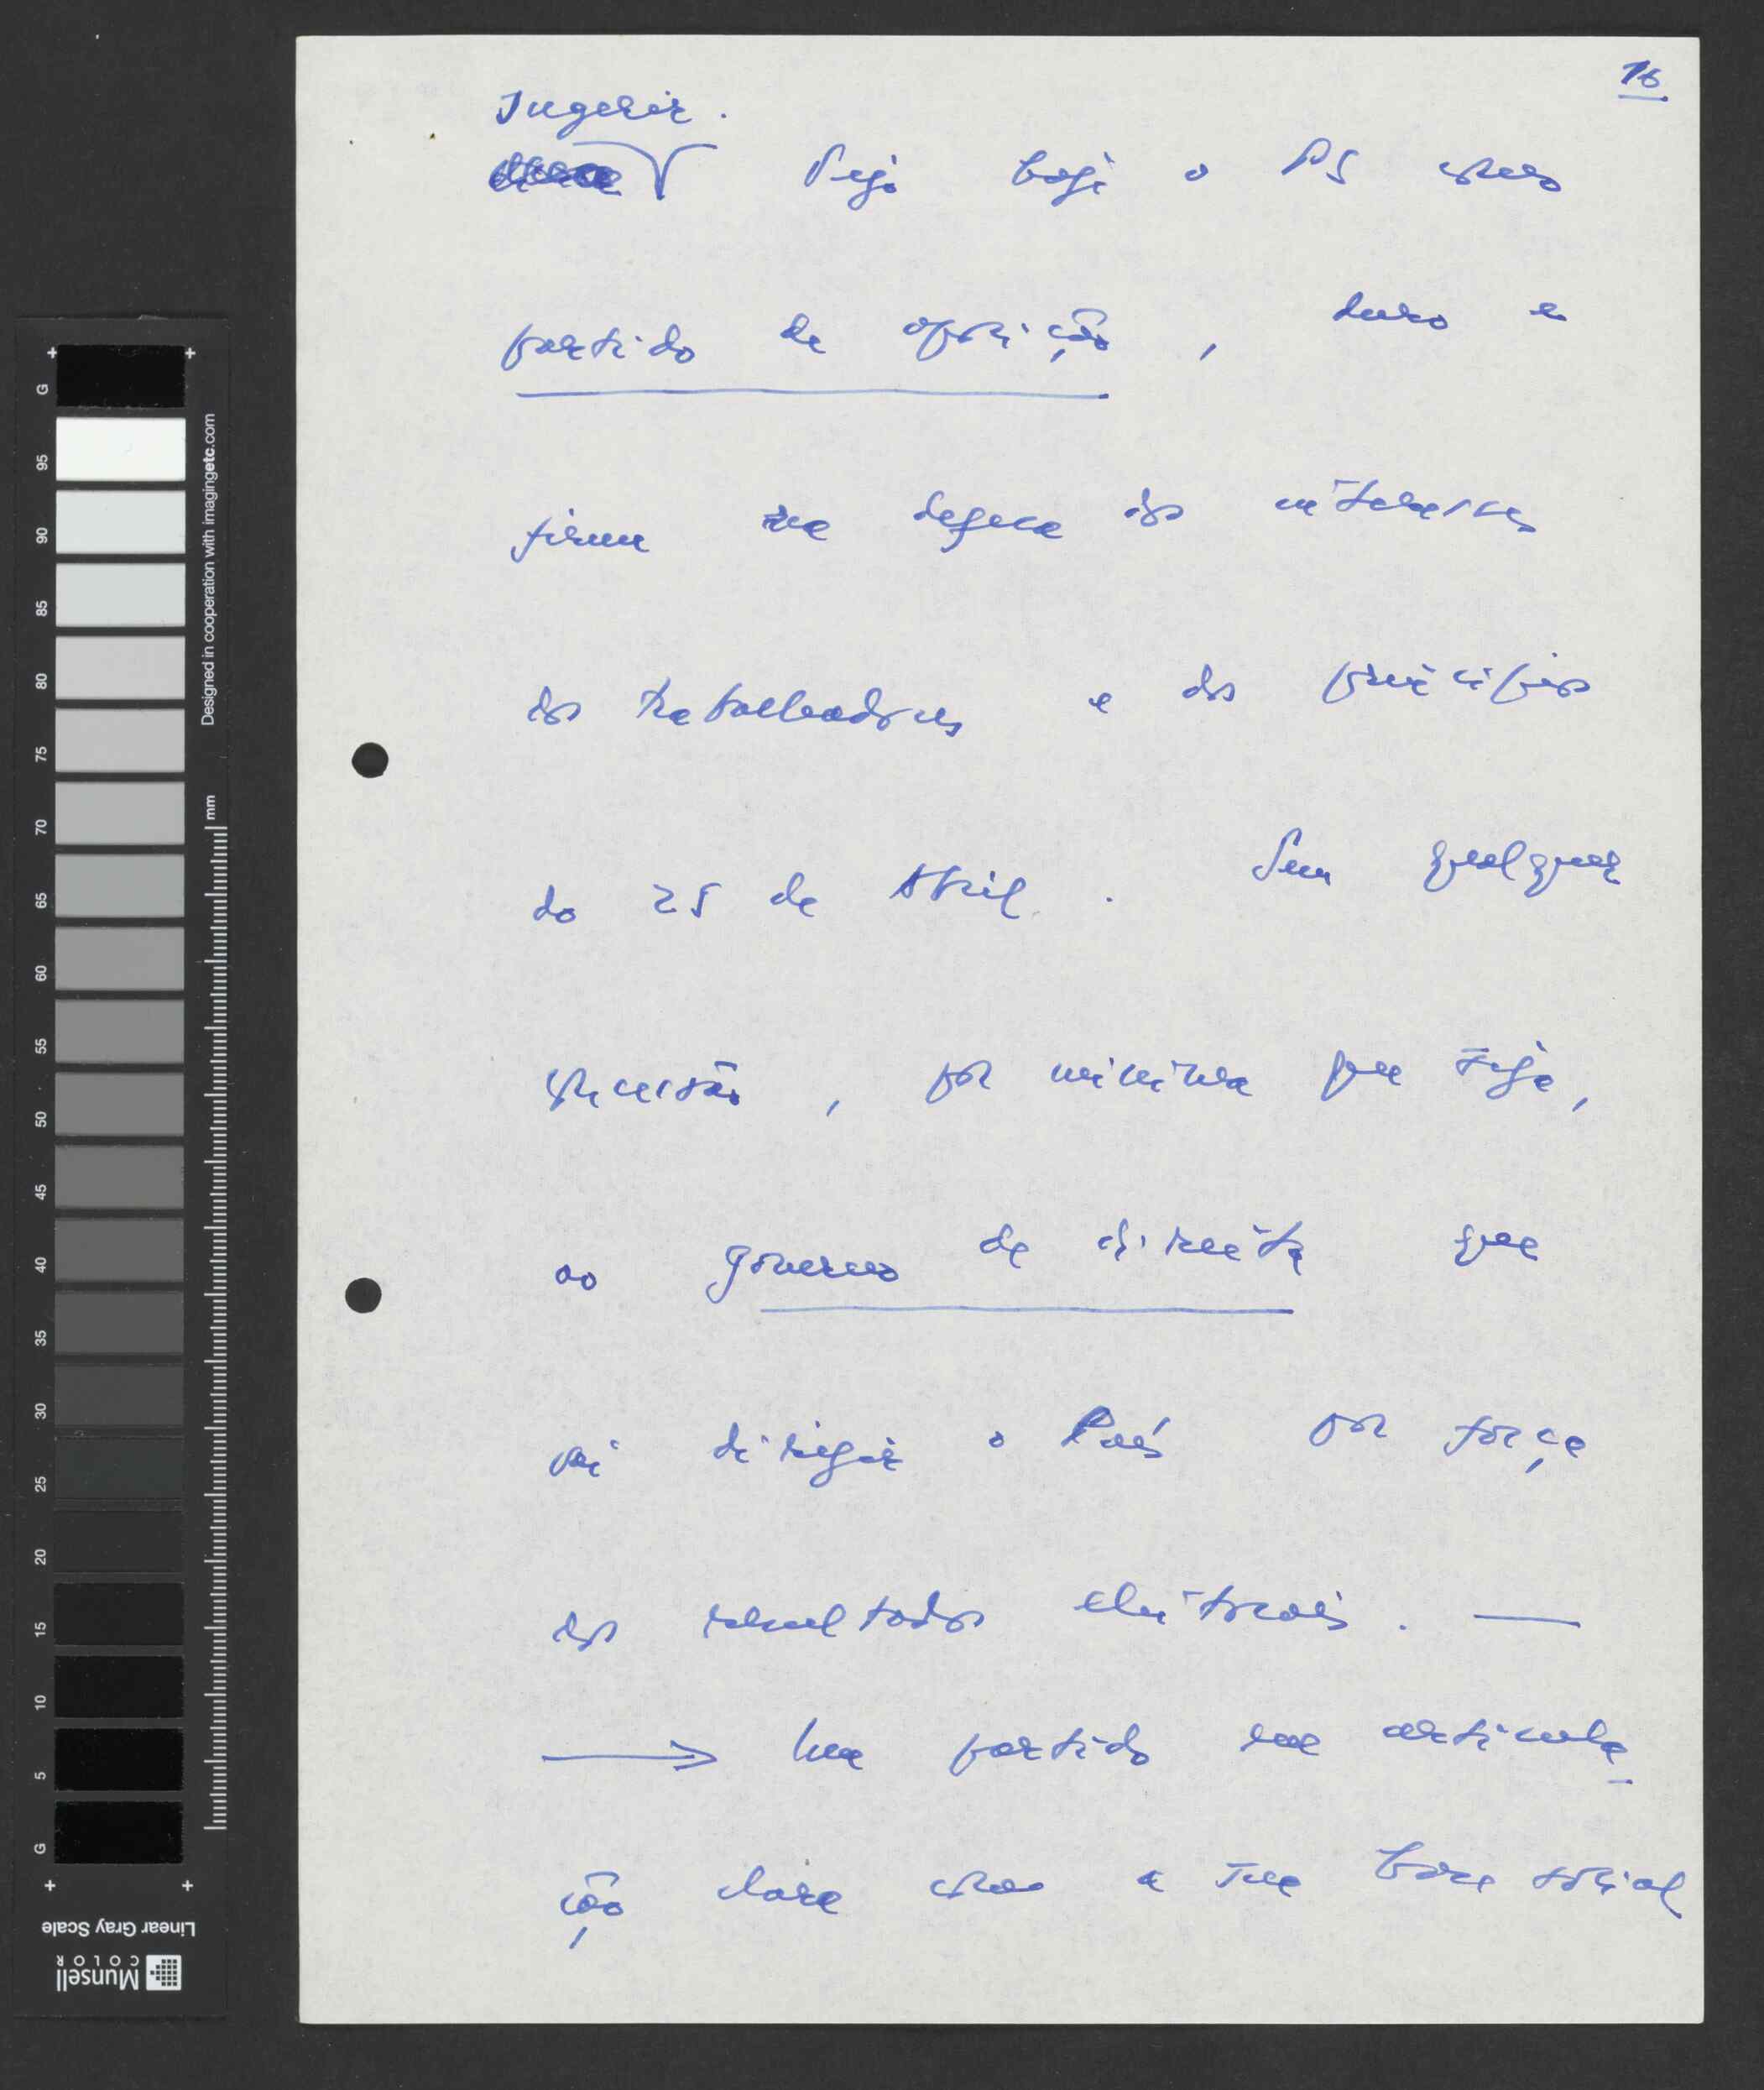 16
Sugerir.
Vejo hoje o PS como
partido de oposição, duro e
firme na defesa dos interesses
dos trabalhadores e dos princípios
do 25 de Abril. Sem qualquer
concessão, por mínima que seja,
ao governo de direita que
vai dirigir o País por força
dos resultados eleitorais. —
→ Um partido em articula-
ção clara com a sua base social
G
95
90
85
80
75
70
65
60
55
50
45
40
35
30
25
20
15
10
5
G
Designed in cooperation with imagingetc.com
mm
Linear Gray Scale
Munsell
COLOR